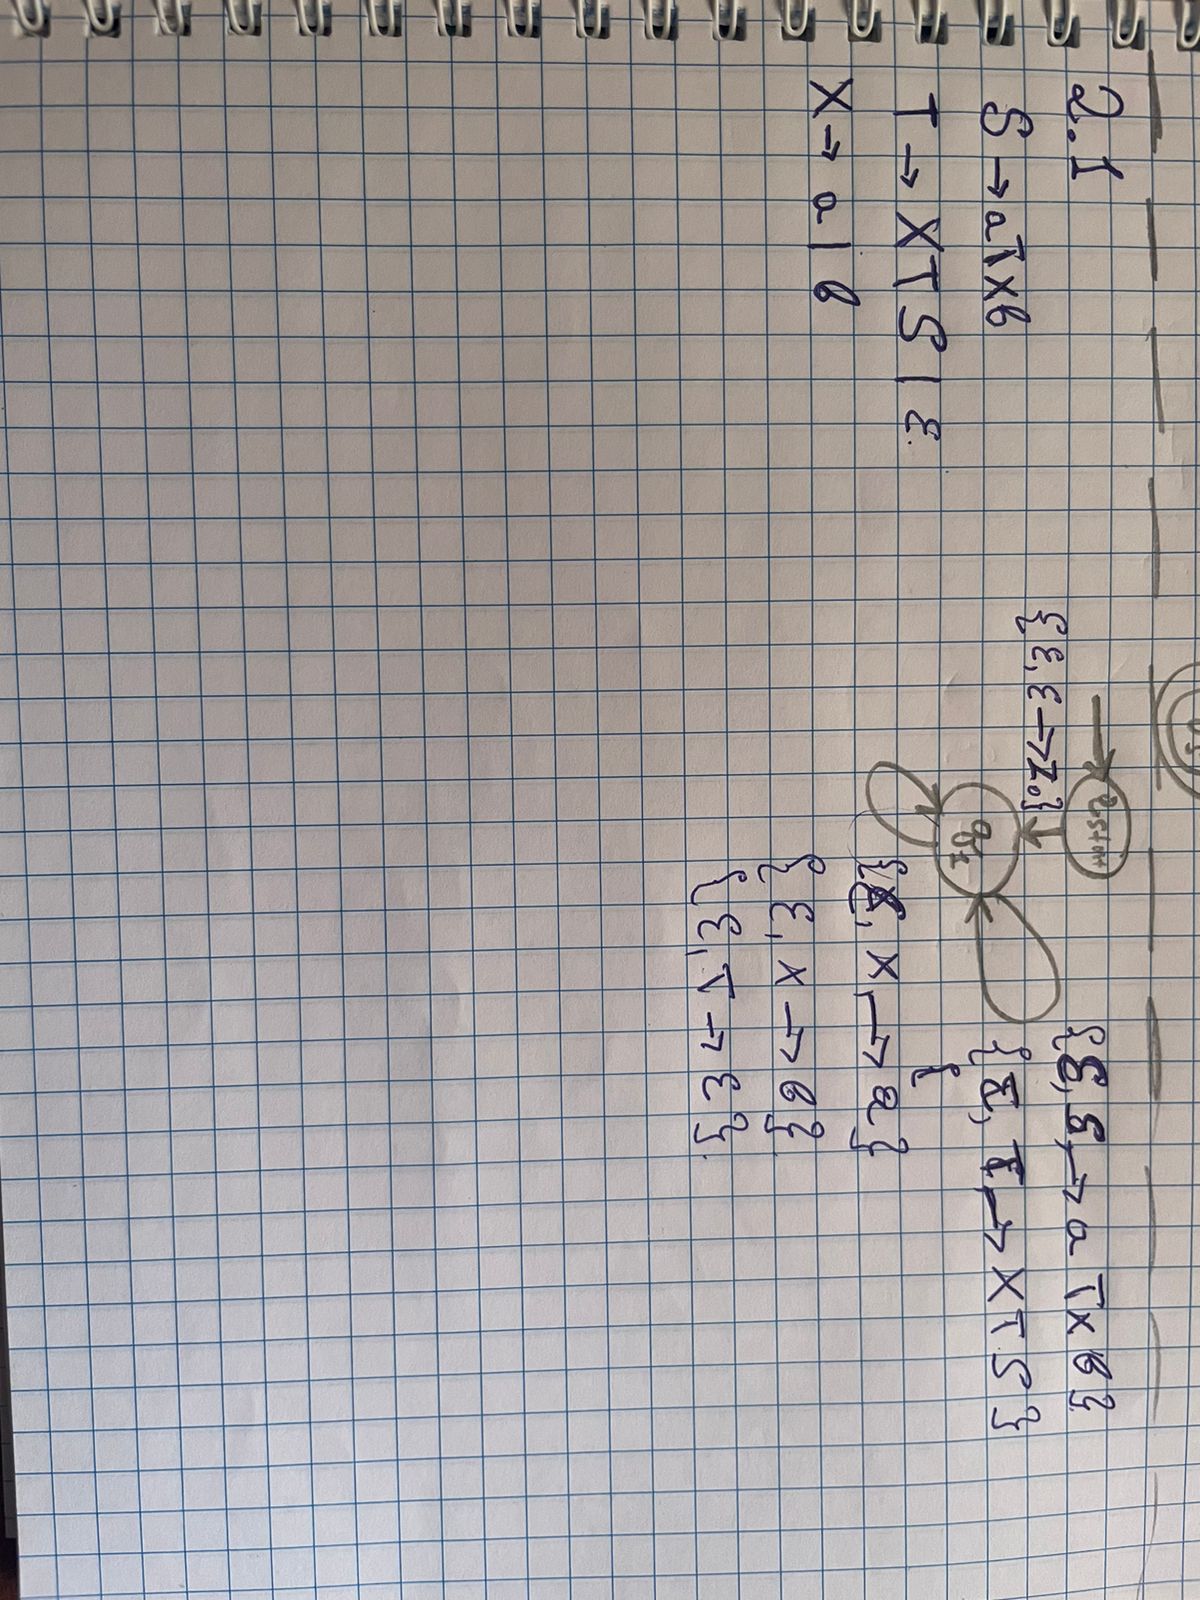 2.1
S → aTXb
T → XTS | ε
X → a | b
qstart
{ε, ε → Z0}
q1
{S, S → aTXb}
{T, T → XTS}
}
X → a}
{ε, X → b}
{ε, T → ε}